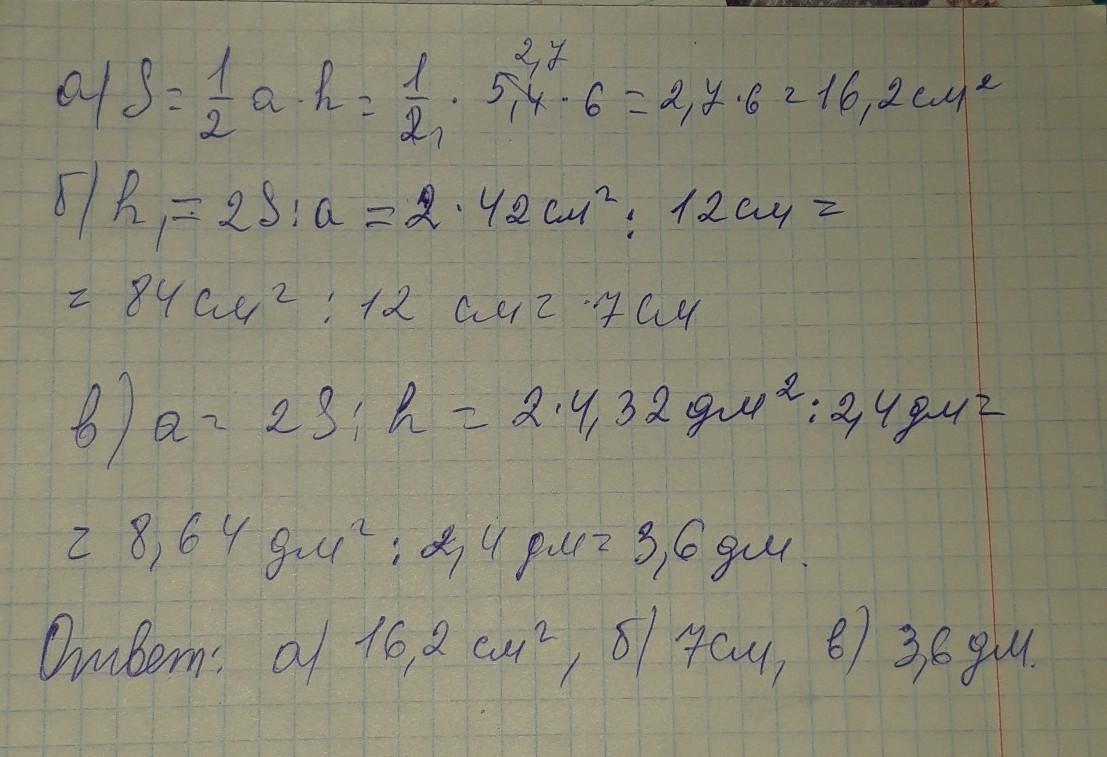 а) S = 1/2 a · h = 1/2 · 5,4 · 6 = 2,7 · 6 = 16,2 см²
2,7
б) h = 2S : a = 2 · 42 см² : 12 см =
= 84 см² : 12 см = 7 см
в) a = 2S : h = 2 · 4,32 дм² : 2,4 дм =
= 8,64 дм² : 2,4 дм = 3,6 дм.
Ответ: а) 16,2 см², б) 7 см, в) 3,6 дм.